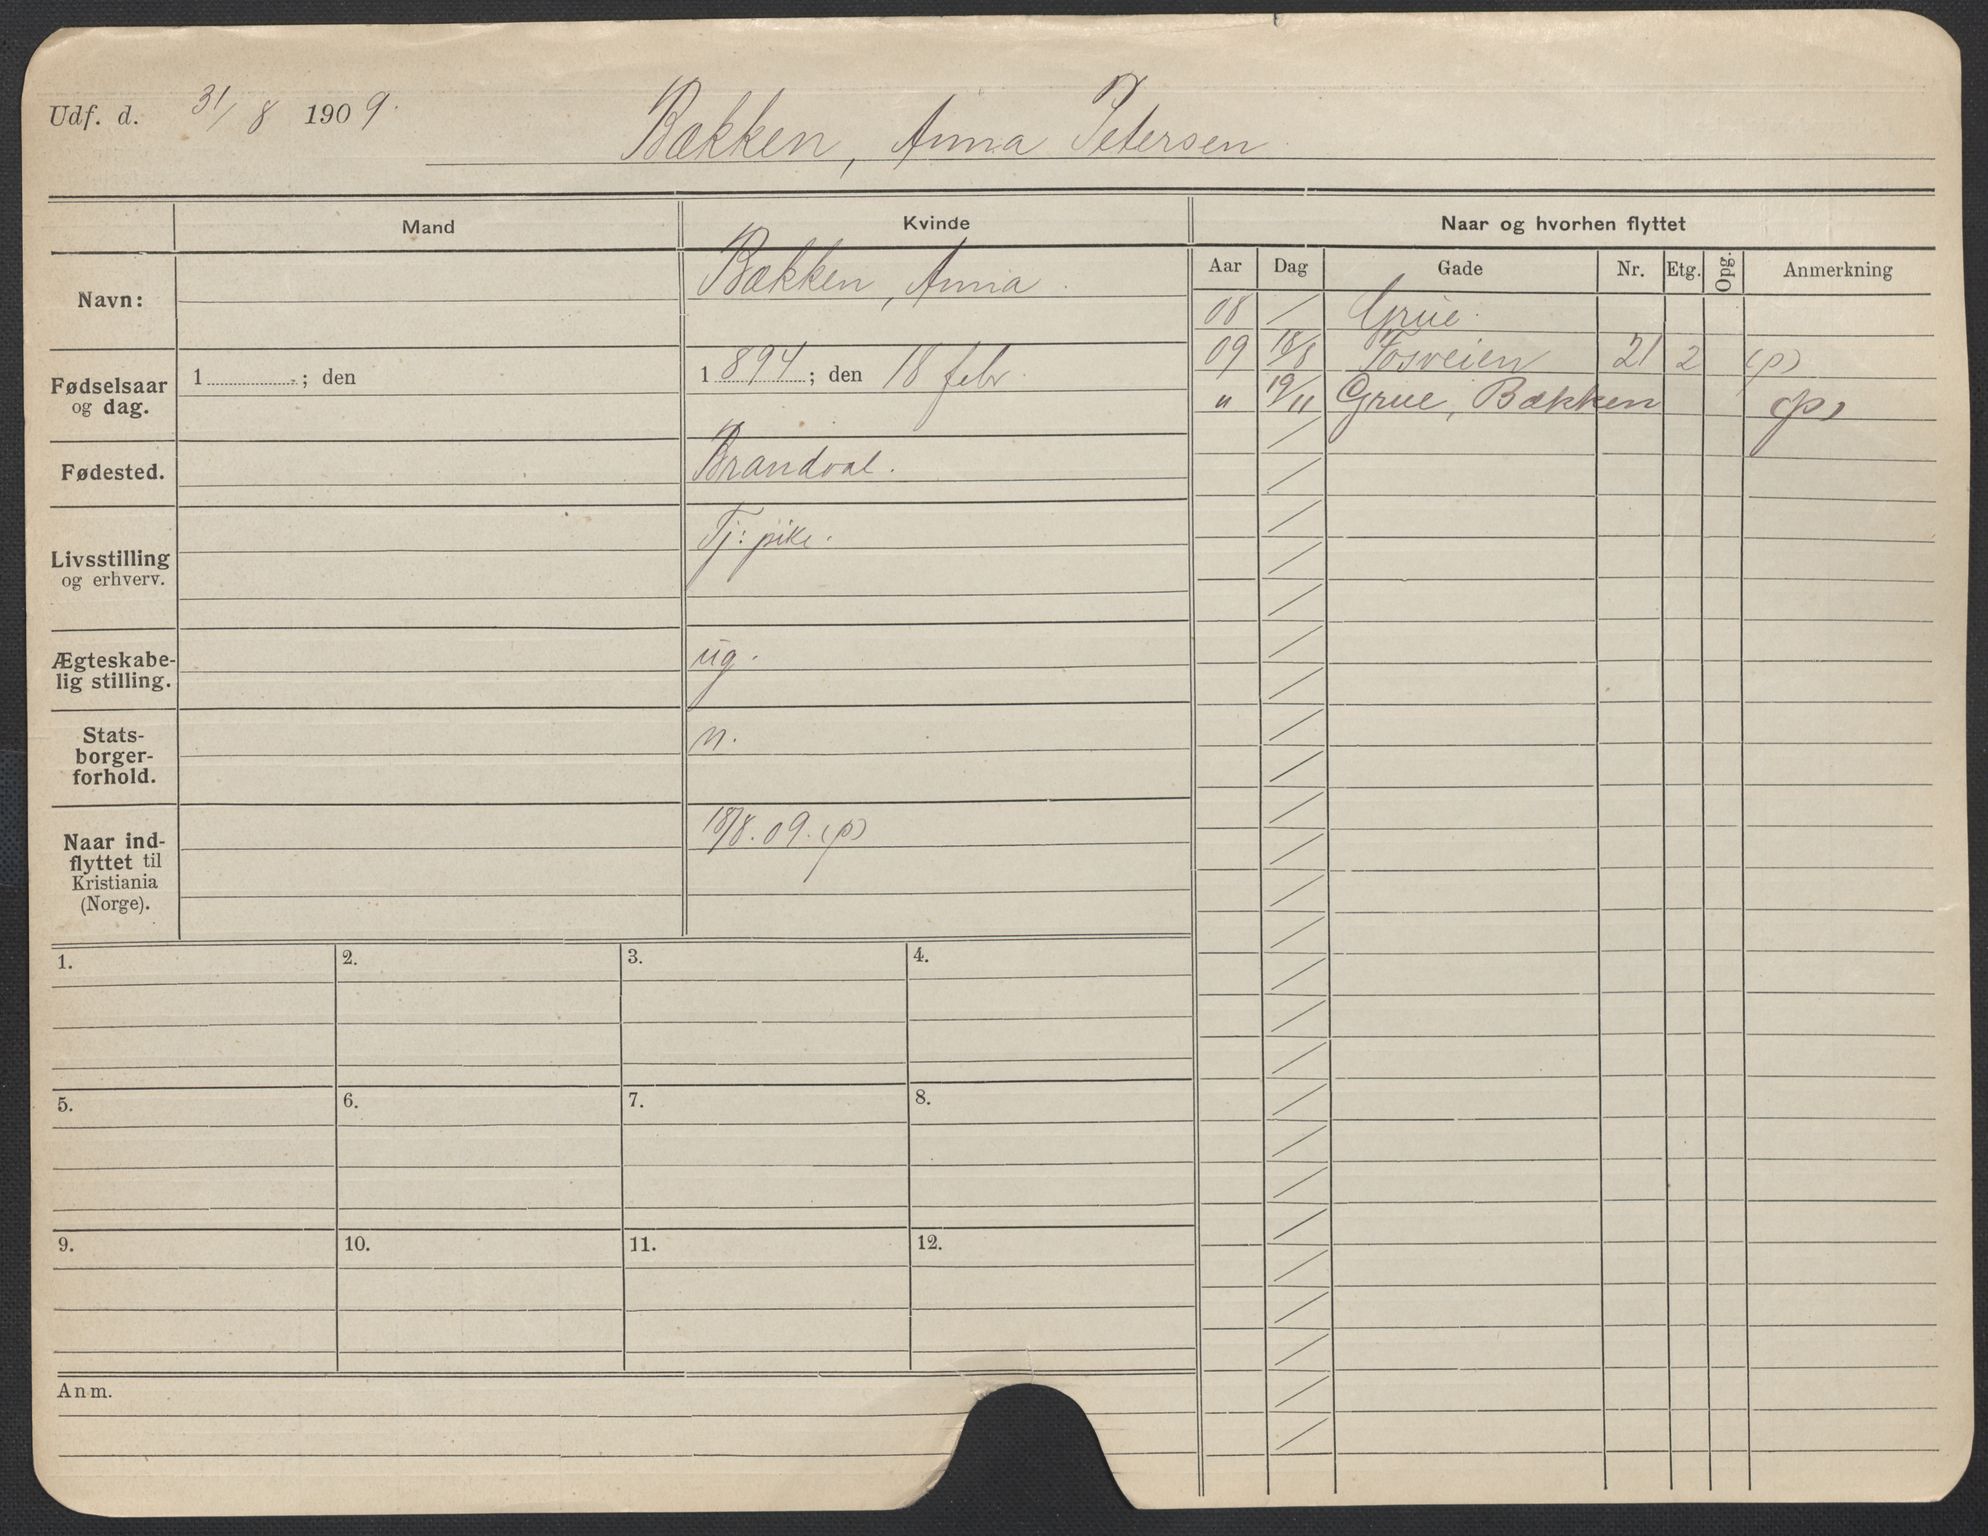 Udf. d. 31/8 1909.
Bækken, Anna Petersen
Mand
Kvinde
Naar og hvorhen flyttet
Navn:
Bækken, Anna.
Fødselsaar og dag.
1 ; den
1894; den 18 febr.
Fødested.
Brandval.
Livsstilling og erhverv.
Tj: pike.
Ægteskabelig stilling.
ug.
Statsborgerforhold.
n.
Naar indflyttet til Kristiania (Norge).
18/8. 09. (p)
Aar Dag Gade Nr. Etg. Opg. Anmerkning
08 / Grue.
09 18/8 Fosveien 21 2 (p)
" 19/11 Grue, Bækken (p)
1. 2. 3. 4.
5. 6. 7. 8.
9. 10. 11. 12.
Anm.